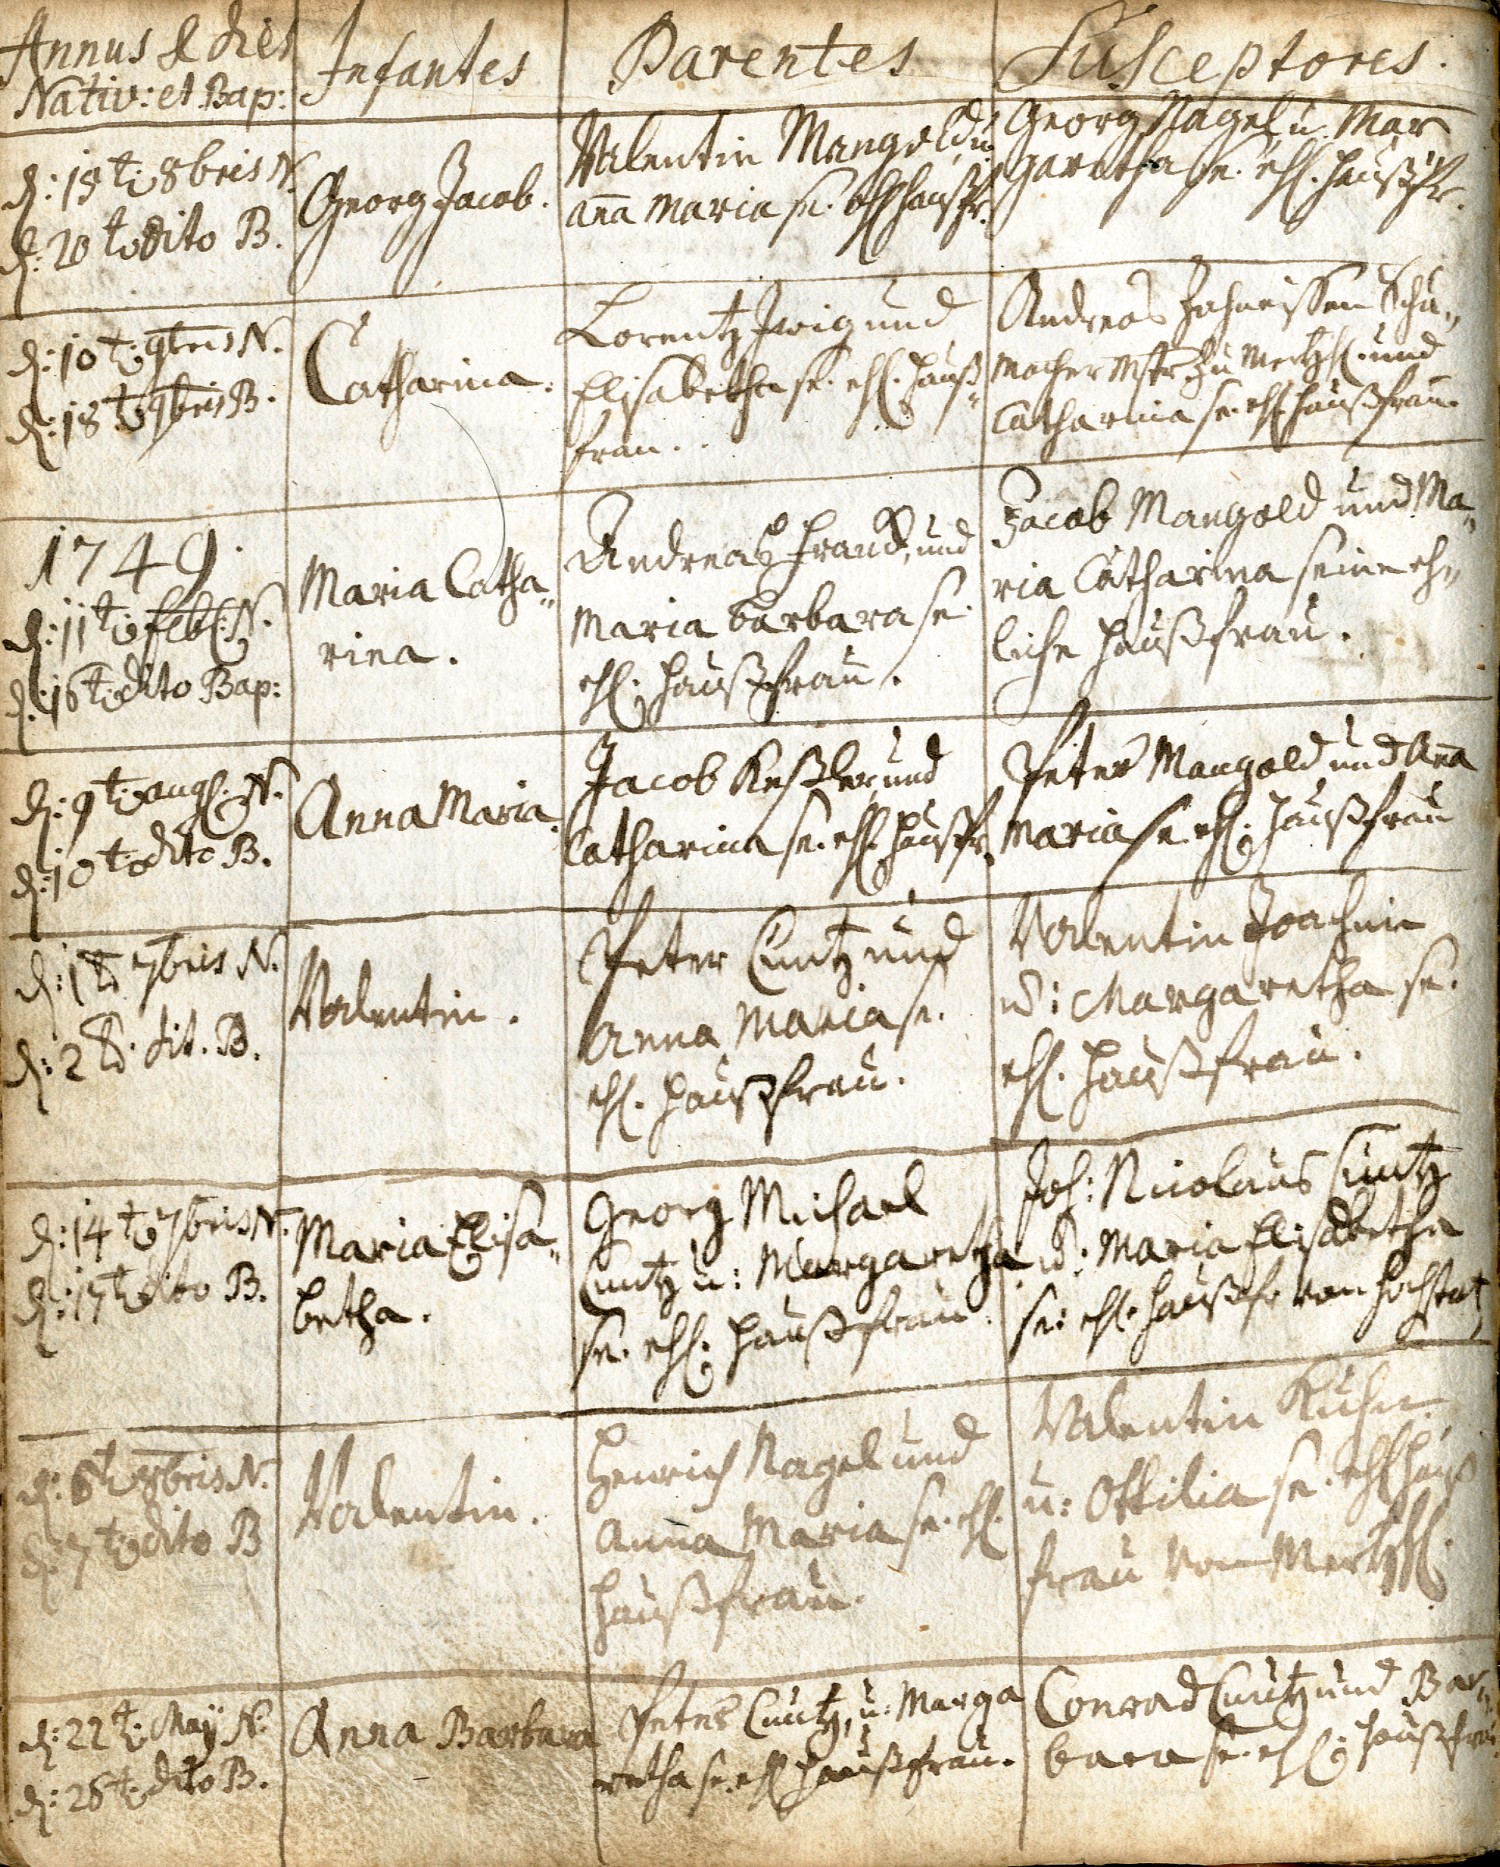 Annus & dies
Nativ: et Bap:
Infantes
Parentes
Susceptores.
d: 18t. 8bris N.
d: 20t. dito B.
Georg Jacob.
Valentin Mangold u.
aña Maria se. ehl haußfr.
Georg Nagel u. Mar
garetha se. ehl. haußfr.
d: 10t. 9bris N.
d: 18t. 9bris B.
Catharina.
Lorentz und
Elisabetha se. ehl. hauß„
frau.
Andreas Schu„
macher Mstr zu und
Catharina se. ehl. haußfrau.
1749.
d: 11t. febr. N.
d: 16t. dito Bap:
Maria Catha„
rina.
Andreas und
Maria barbara se.
ehl. haußfrau.
Jacob Mangold und Ma„
ria Catharina seine eh„
liche haußfrau.
d: 9t. aug. N.
d: 10t. dito B.
Anna Maria.
Jacob Keßler und
Catharina se. ehl. haußfr.
Peter Mangold und Aña
Maria se. ehl. haußfrau
d: 1t. 7bris N.
d: 2t. dit. B.
Valentin.
Peter Cuntz und
Anna Maria se.
ehl. haußfrau.
Valentin Joachim
u: Margaretha se.
ehl. haußfrau.
d: 14t. 7bris N.
d: 17t. dito B.
Maria Elisa„
betha.
Georg Michael
Cuntz u: Margaretha
se. ehl. haußfrau.
Joh: Nicolaus Cuntz
u: Maria Elisabetha
se: ehl. haußfr von Hochstat
d: 6t. 8bris N.
d: 7t. dito B
Valentin.
Henrich Nagel und
Anna Maria se. ehl.
haußfrau.
Valentin Kuhn
u: Ottilia se. ehl hauß
frau von
d: 22t. May N.
d: 26t. dito B.
Anna Barbara
Peter Cuntz, u: Marga
retha se. ehl haußfrau.
Conrad Cuntz und Bar„
bara se. ehl. haußfrau